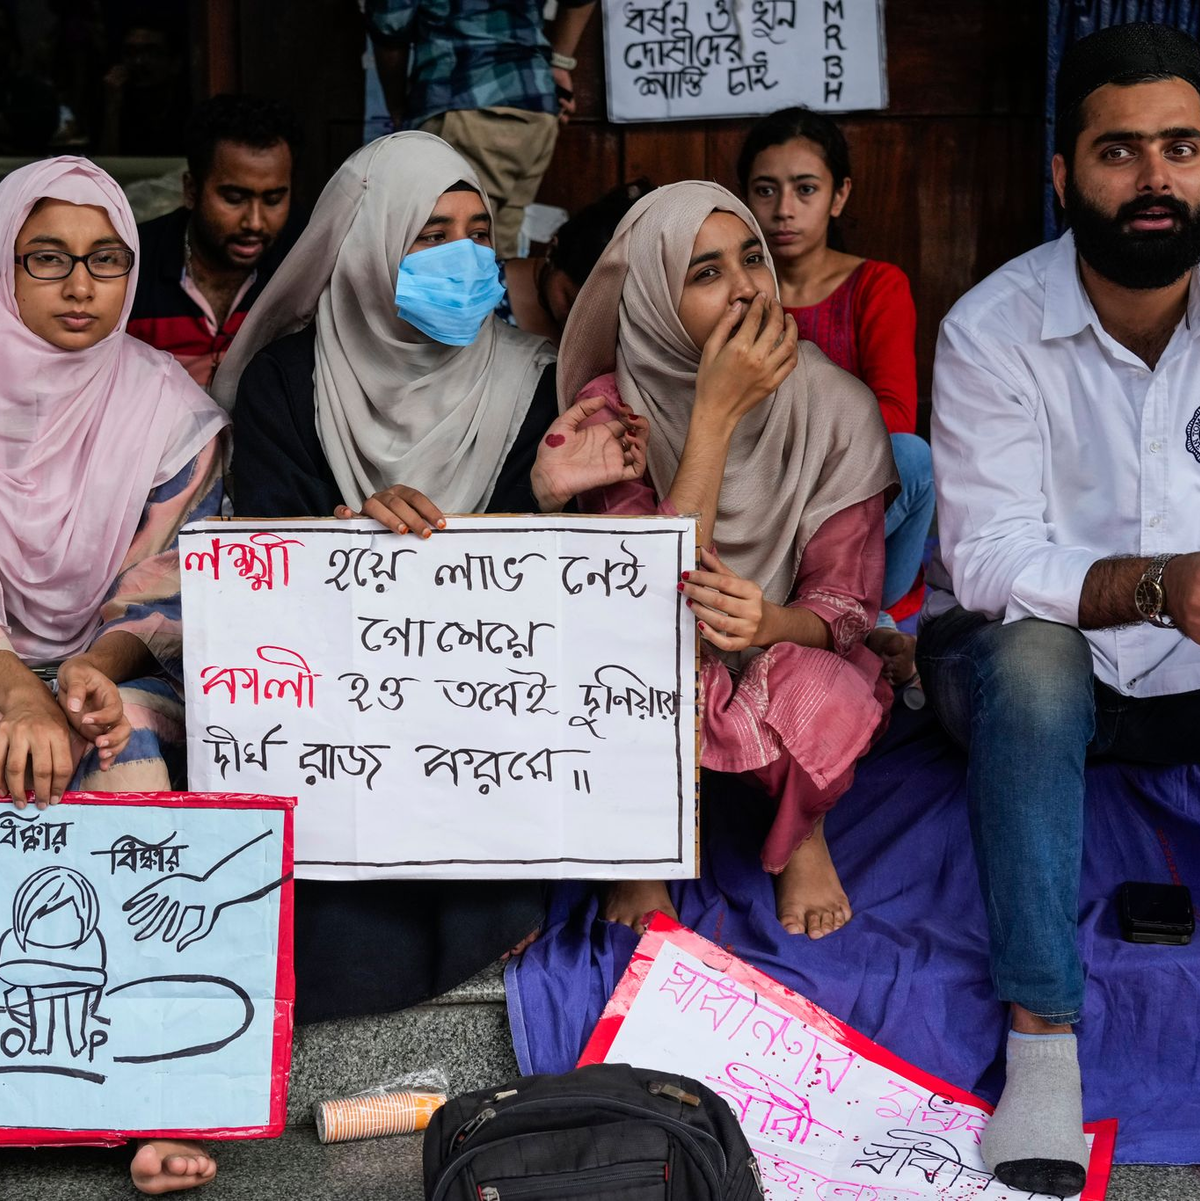 ধর্ষন ও খুন
দোষীদের
শাস্তি চাই
MRBH
লক্ষ্মী হয়ে লাভ নেই
গো মেয়ে
কালী হও তবেই দুনিয়ায়
দীর্ঘ রাজ করবে॥
ধিক্কার
ধিক্কার
স্বাধীনতার
নারী